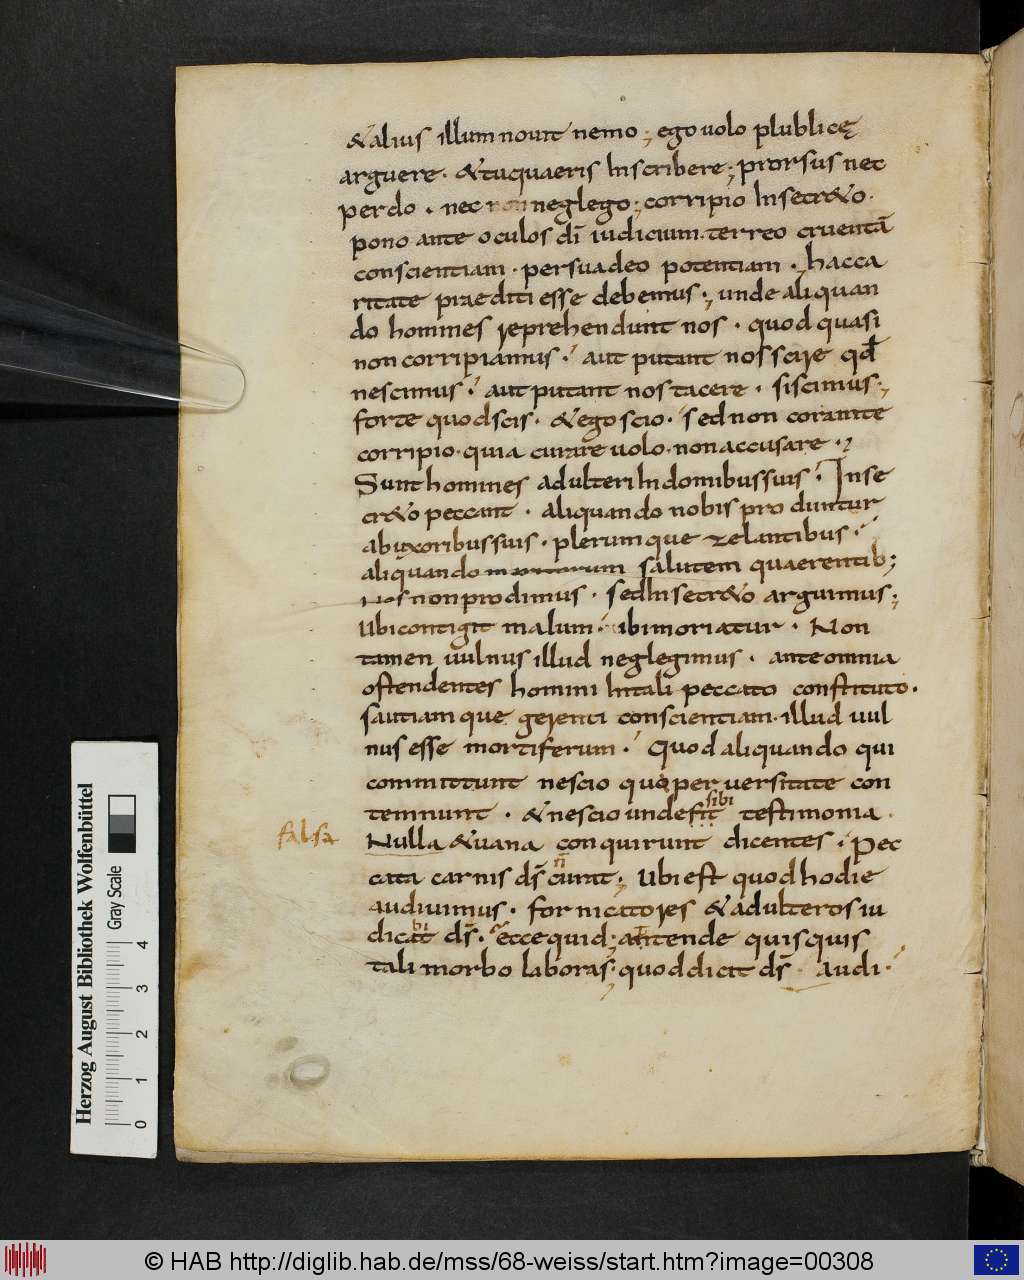 &alius illum nouit nemo; ego uolo plublicę
arguere. &tuquaeris Inscribere; prorsus nec
perdo. nec non neglego; corripio Insecr&o.
pono ante oculos dī iudicium. terreo cruentā
conscientiam. persuadeo potentiam. hacca
ritate praediti esse debemus; unde aliquan
do homines reprehendunt nos. quod quasi
non corripiamus. aut putant nos scire qđ
nescimus. aut putant nos tacere. siscimus;
forte quod scis. & ego scio. sed non coramte
corripio. quia curare uolo. non accusare.
Sunt homines adulteri In domibus suis. Inse
cr&o peccant. aliquando nobis produntur
abuxoribus suis. plerumque zelantibus.
aliquando mortorum salutem quaerentib;
Nos non prodimus. sed In secr&o arguimus;
Ubi contigit malum. ibi moriatur. Non
tamen uulnus illud neglegimus. ante omnia
ostendentes homini In tali peccato constituto.
sautiam que gerenti conscientiam. illud uul
nus esse mortiferum. Quod aliquando qui
committunt nescio qua peruersitate con
temnunt. & nescio unde sit sibi testimonia.
falsa
Nulla & uana conquirunt dicentes. Pec
cata carnis ds̄ ñ curat; Ubi est quod hodie
audiuimus. fornicatores & adulteros iu
dicabit ds̄. ecce quid; attende quisquis
tali morbo laboras; quod dicit ds̄ Audi.
Herzog August Bibliothek Wolfenbüttel
Gray Scale
0 1 2 3 4
© HAB http://diglib.hab.de/mss/68-weiss/start.htm?image=00308